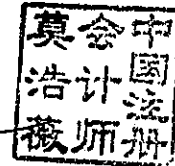 中国注册
会计师
莫浩薇